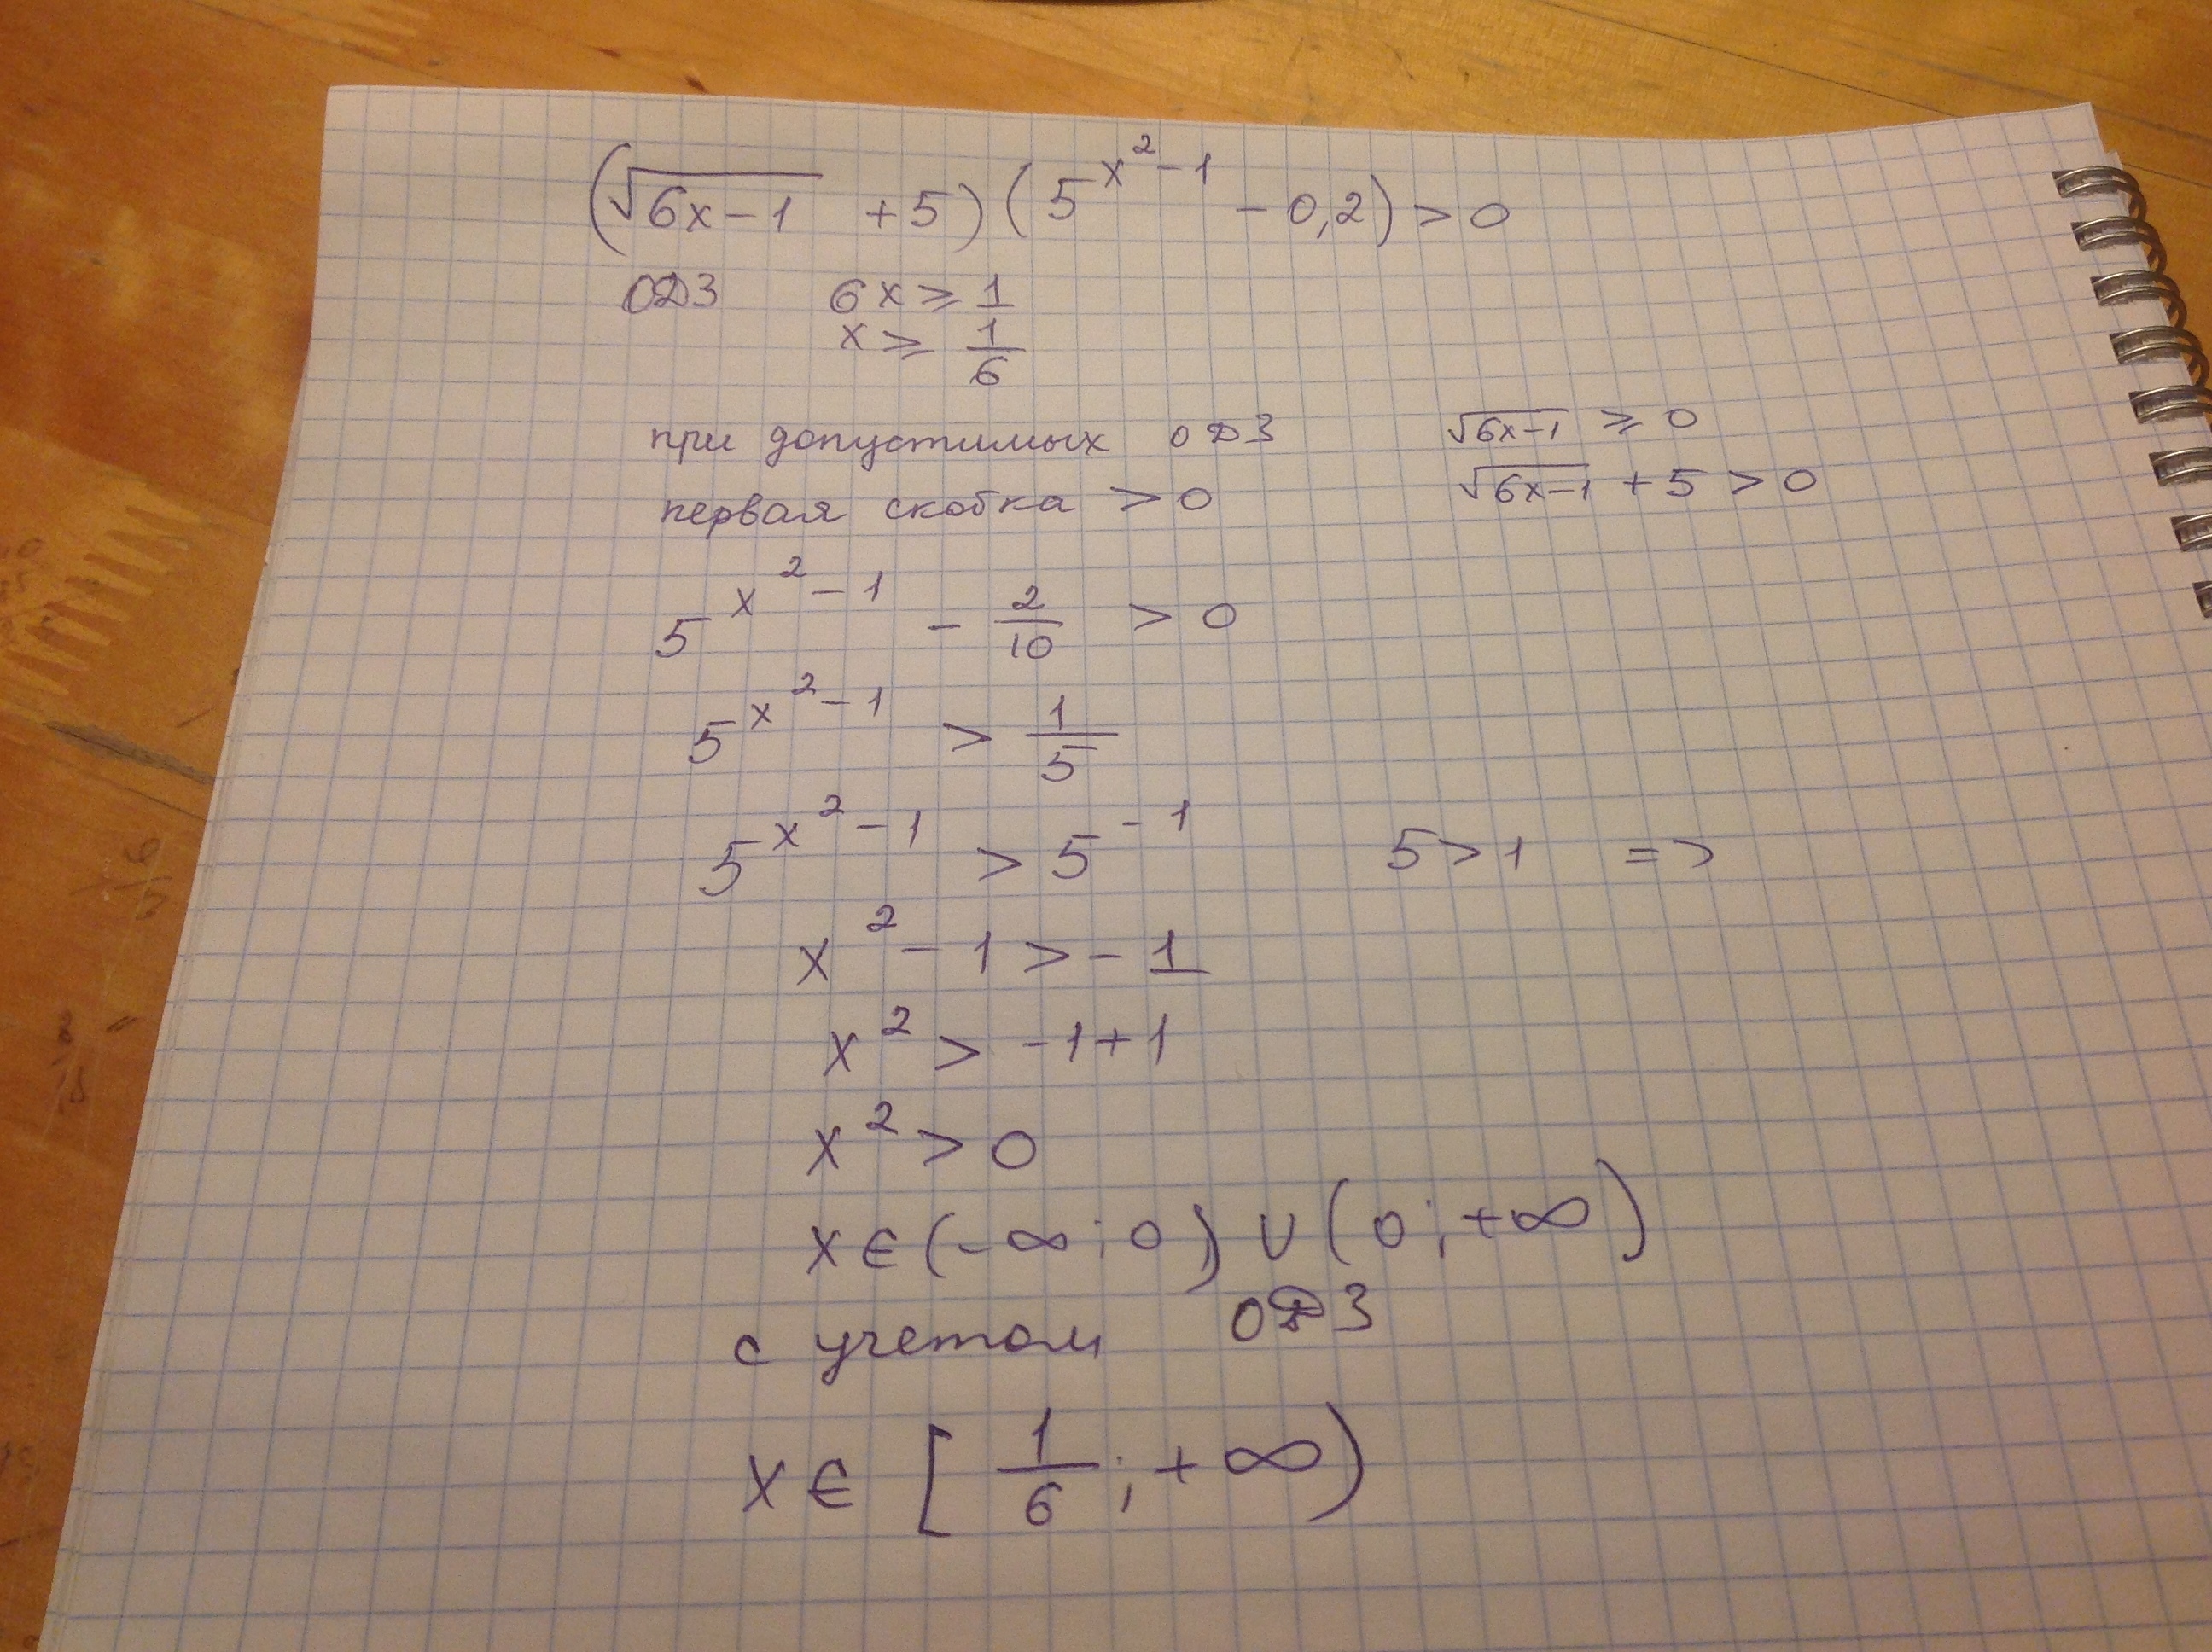 (√6x-1 + 5) (5^x²-1 - 0,2) > 0
ОДЗ 6x ⩾ 1
x ⩾ 1/6
при допустимых ОДЗ √6x-1 ⩾ 0
первая скобка > 0 √6x-1 + 5 > 0
5^x²-1 - 2/10 > 0
5^x²-1 > 1/5
5^x²-1 > 5^-1 5 > 1 =>
x² - 1 > - 1
x² > -1+1
x² > 0
x ∈ (-∞; 0) ∪ (0; +∞)
с учетом ОДЗ
x ∈ [1/6; +∞)